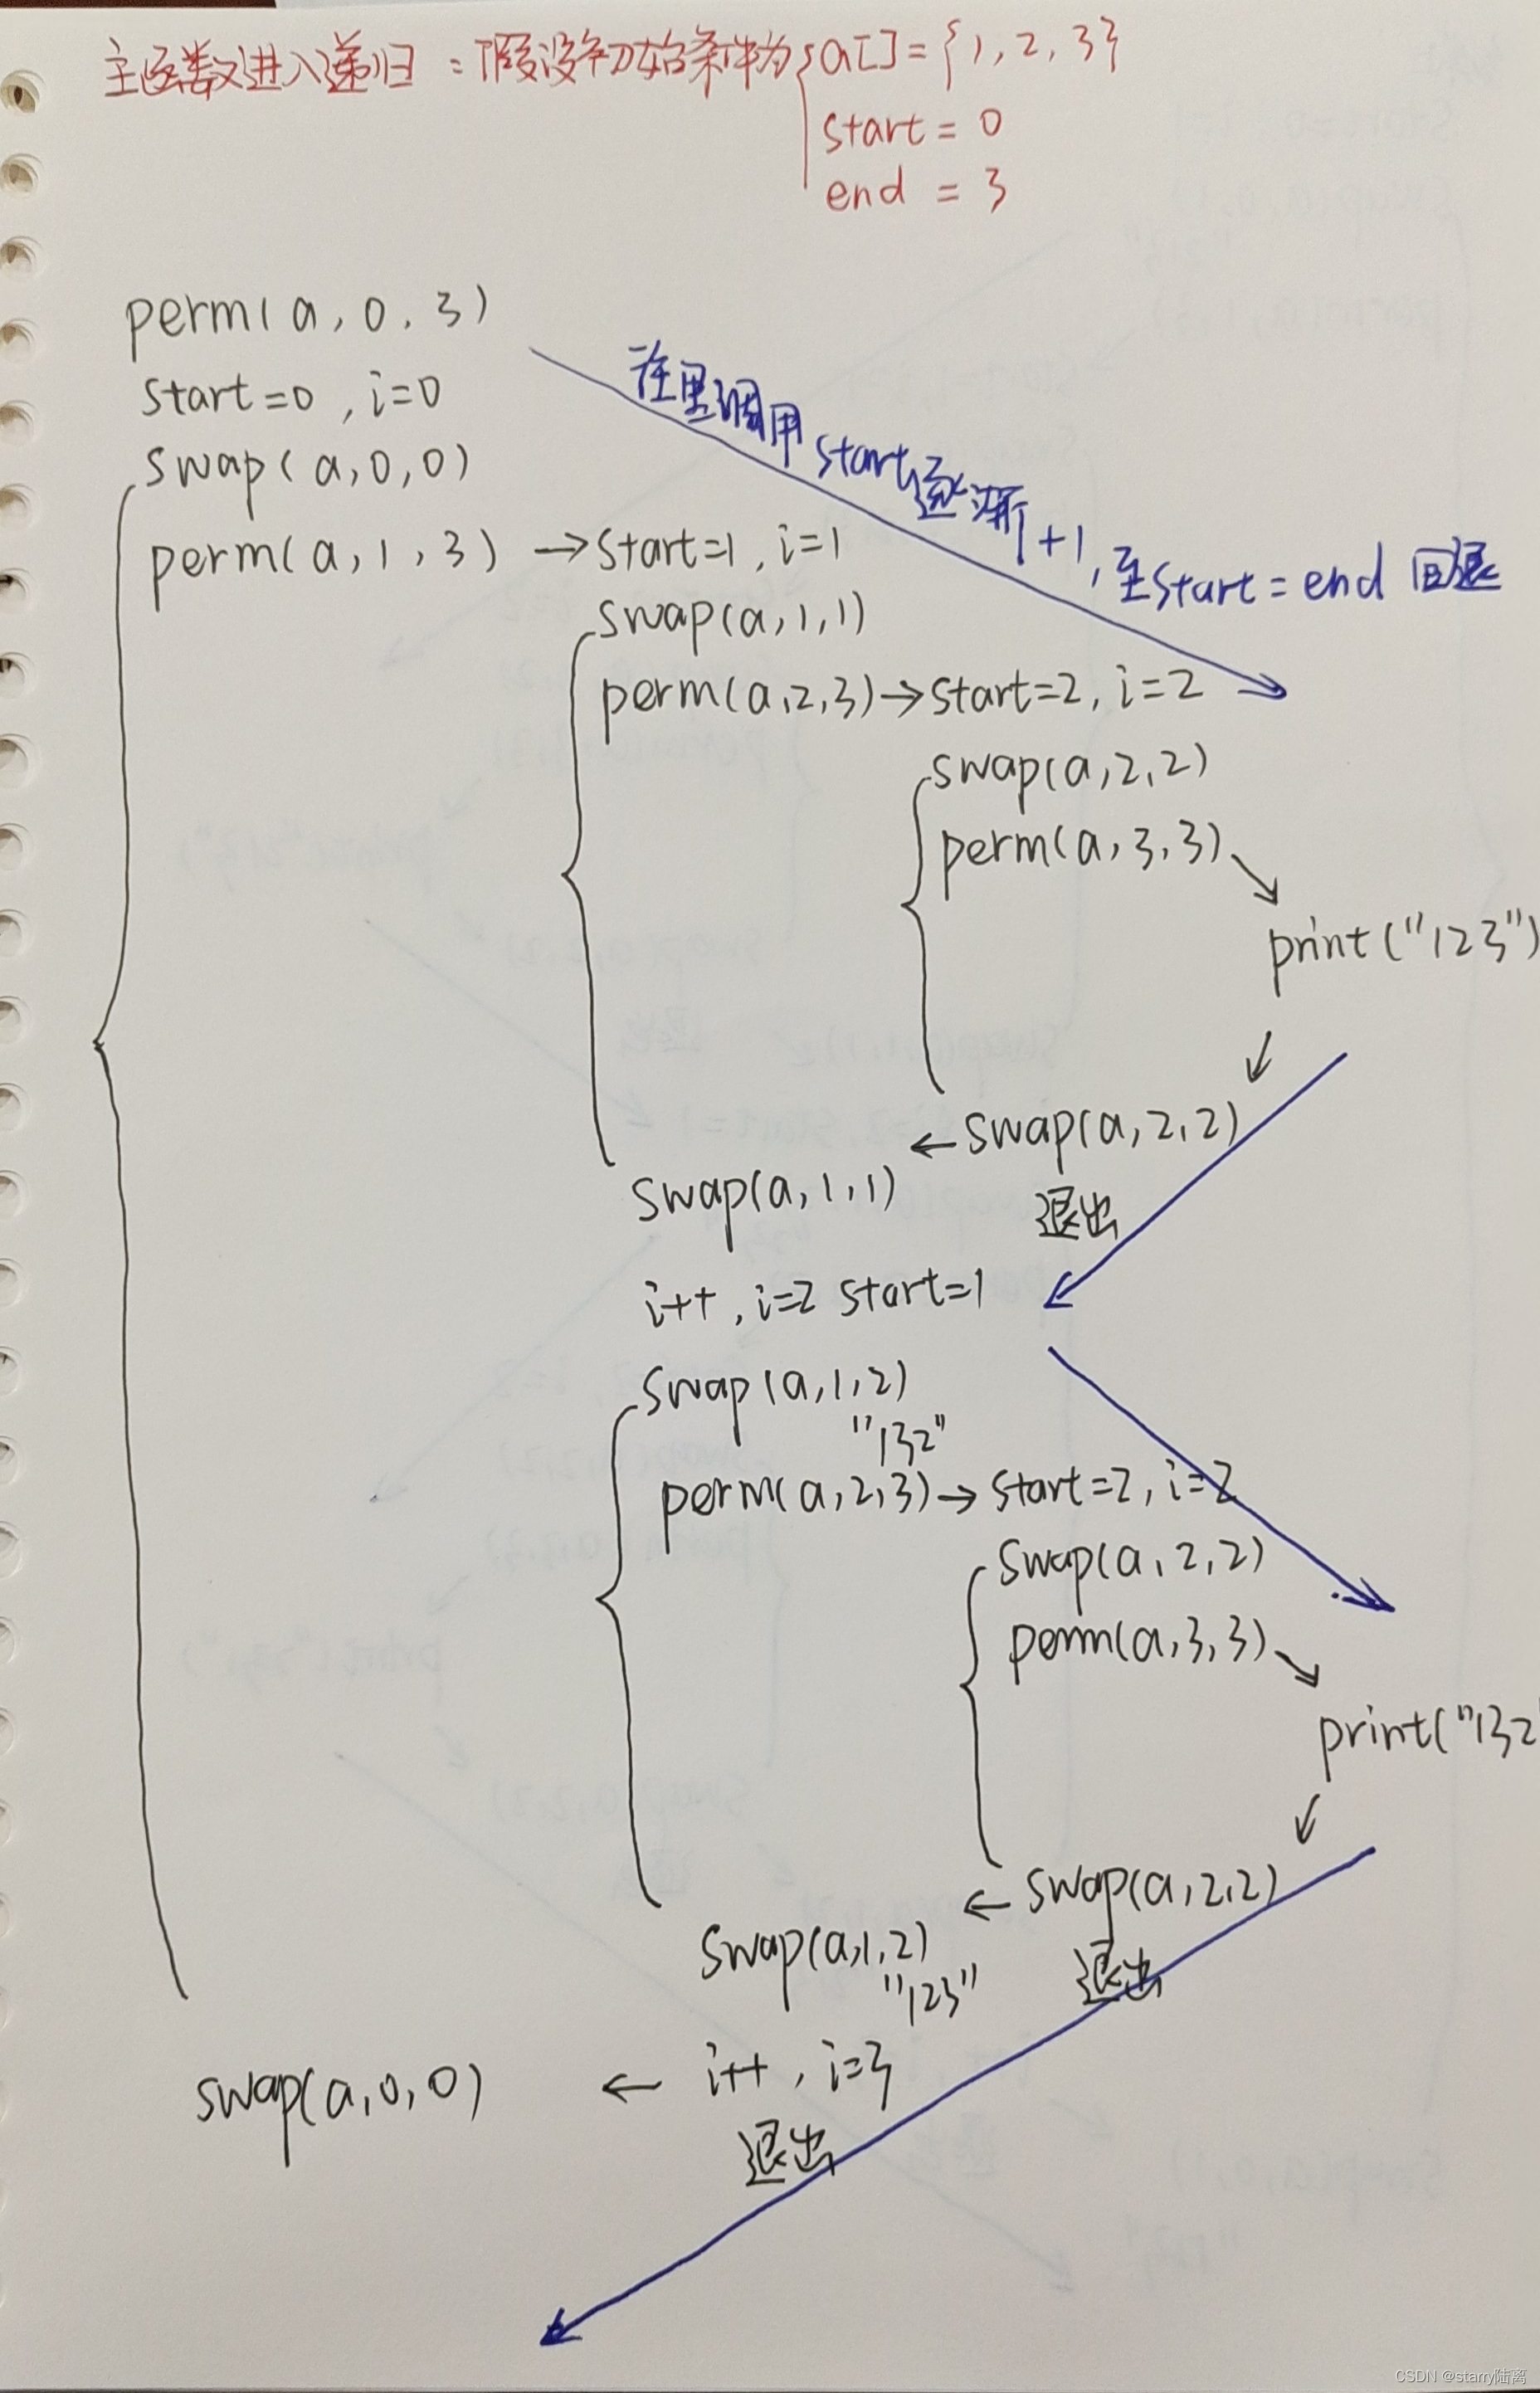 主函数进入递归：假设初始条件为{a[]={1,2,3}
start=0
end=3
perm(a,0,3)
start=0,i=0
swap(a,0,0)
往里调用start逐渐+1,至start=end回退
perm(a,1,3)→start=1,i=1
swap(a,1,1)
perm(a,2,3)→start=2,i=2
swap(a,2,2)
perm(a,3,3)
print("123")
←swap(a,2,2)
swap(a,1,1) 退出
i++,i=2 start=1
swap(a,1,2)
"132"
perm(a,2,3)→start=2,i=2
swap(a,2,2)
perm(a,3,3)
print("132
←swap(a,2,2)
swap(a,1,2) 退出
"123"
swap(a,0,0) ← i++,i=3
退出
CSDN @starry陆离